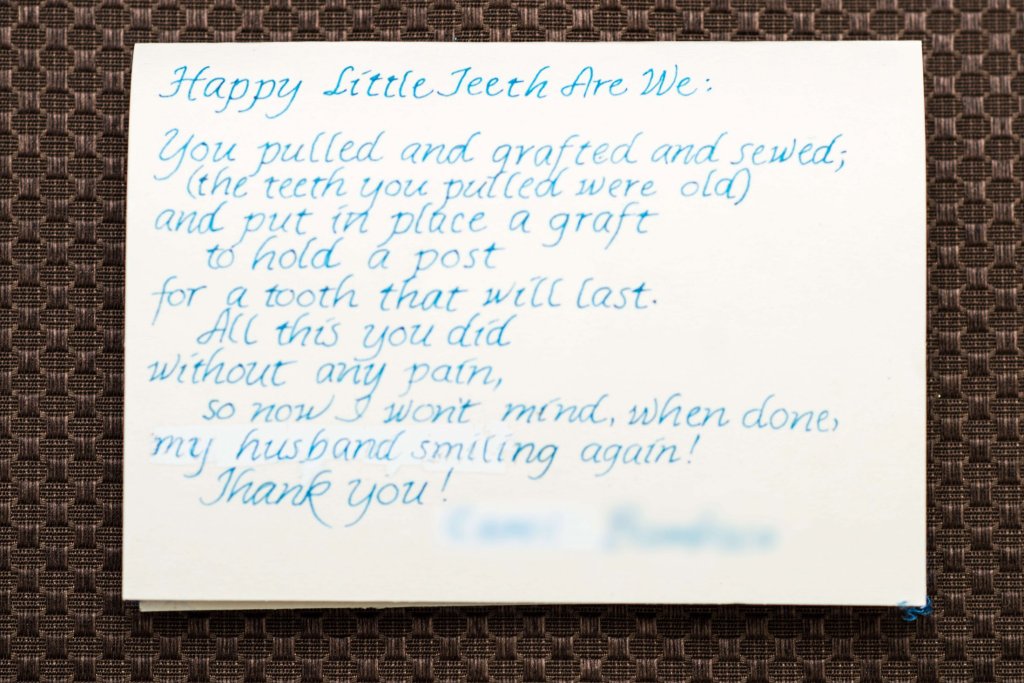 Happy Little Teeth Are We:
You pulled and grafted and sewed;
(the teeth you pulled were old)
and put in place a graft
to hold a post
for a tooth that will last.
All this you did
without any pain,
so now I won't mind, when done,
my husband smiling again!
Thank you!